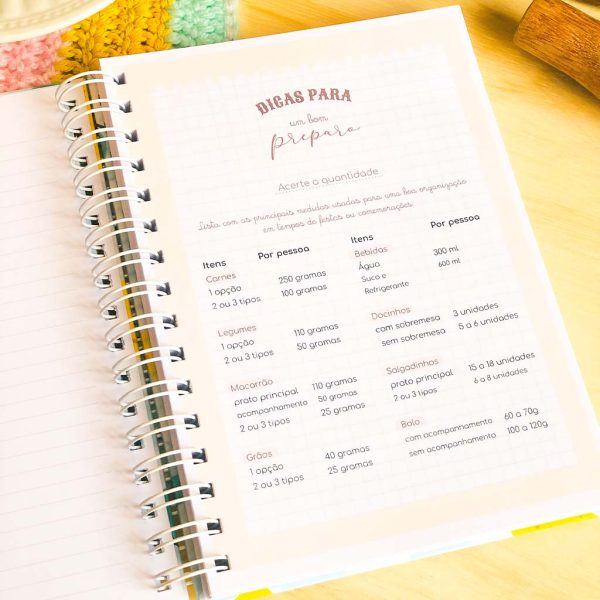 DICAS PARA
um bom
preparo
Acerte a quantidade
Lista com as principais medidas usadas para uma boa organização
em tempos de festas ou comemorações.
Itens Por pessoa
Carnes
1 opção 250 gramas
2 ou 3 tipos 100 gramas
Legumes
1 opção 110 gramas
2 ou 3 tipos 50 gramas
Macarrão
prato principal 110 gramas
acompanhamento 50 gramas
2 ou 3 tipos 25 gramas
Grãos
1 opção 40 gramas
2 ou 3 tipos 25 gramas
Itens Por pessoa
Bebidas
Água 300 ml
Suco e 600 ml
Refrigerante
Docinhos
com sobremesa 3 unidades
sem sobremesa 5 a 6 unidades
Salgadinhos
prato principal 15 a 18 unidades
2 ou 3 tipos 6 a 8 unidades
Bolo
com acompanhamento 60 a 70g
sem acompanhamento 100 a 120g